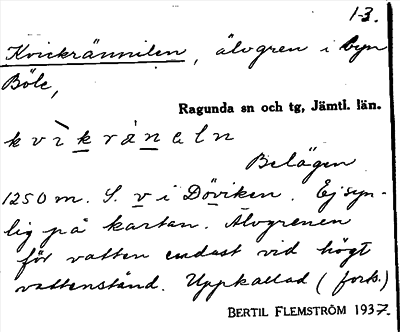 1-3.
Kvickrännilen, älvgren i byn
Böle,
Ragunda sn och tg, Jämtl. län.
kvìkränеln
Belägen
1250 m. S. v i Döviken. Ej syn-
lig på kartan. Älvgrenen
för vatten endast vid högt
vattenstånd. Uppkallad (forts.)
BERTIL FLEMSTRÖM 1937.